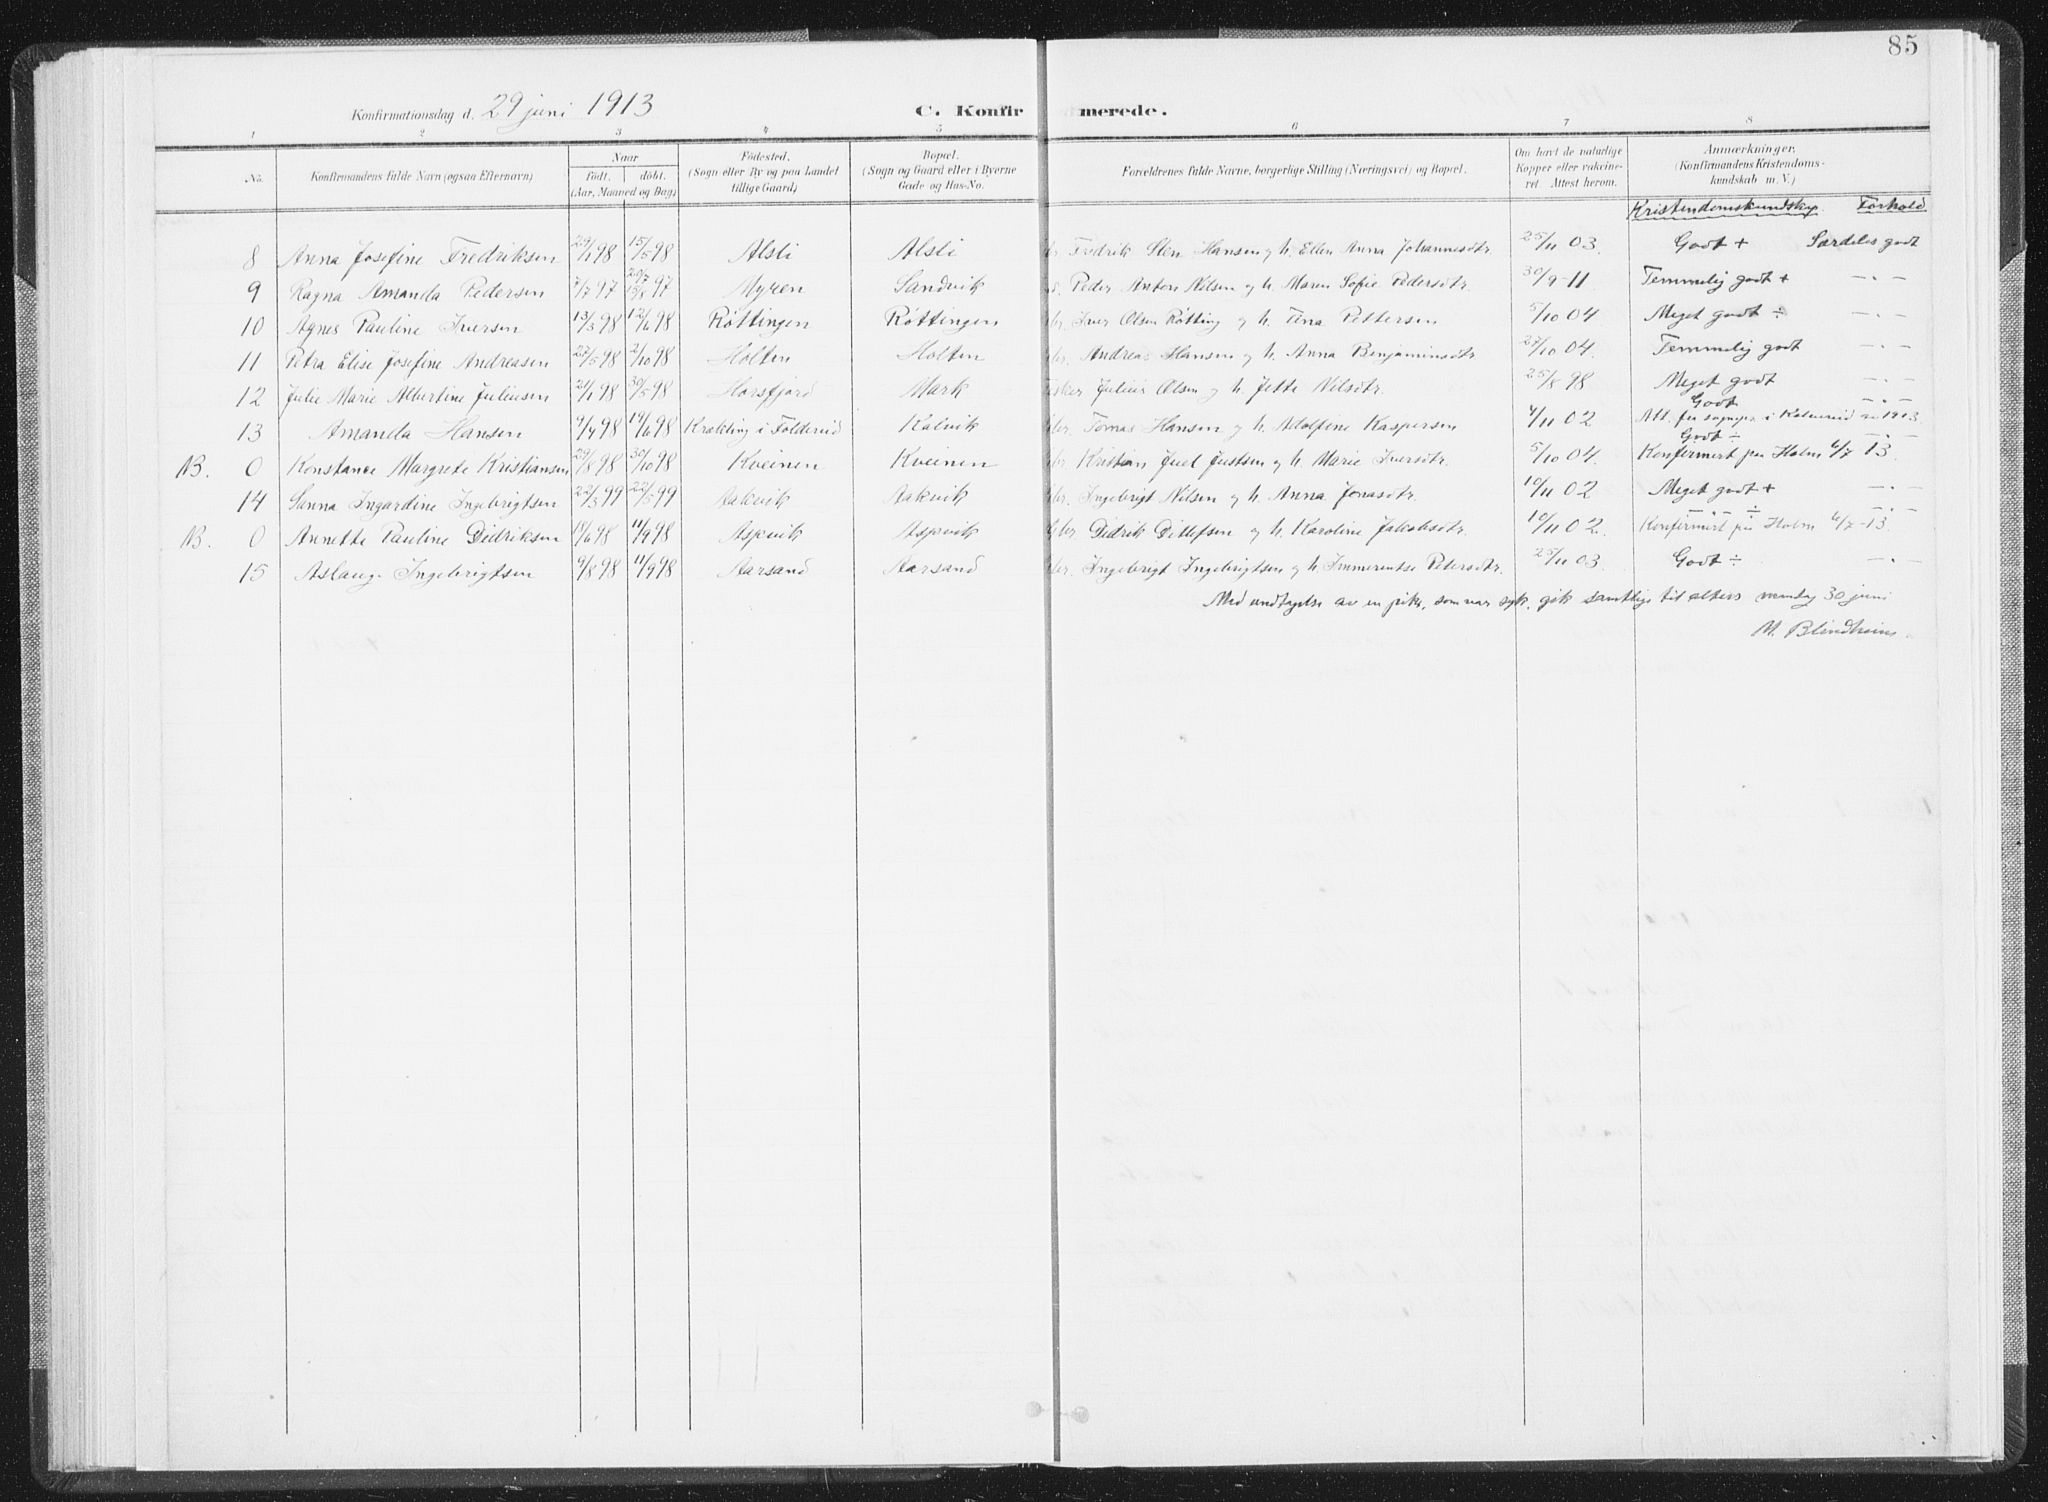 85
Konfirmationsdag d. 29 juni 1913 C. Konfirmerede.
1 2 3 4 5 6 7 8
No. Konfirmandens fulde Navn (ogsaa Efternavn) Naar født. døbt. (Aar, Maaned og Dag) Fødested. (Sogn eller By og paa Landet tillige Gaard) Bopæl. (Sogn og Gaard eller i Byerne Gade og Hus-No. Forældrenes fulde Navne, borgerlige Stilling (Næringsvei) og Bopæl. Om havt de naturlige Kopper eller vakcineret. Attest herom. Anmærkninger. (Konfirmandens Kristendomskundskab m. V.)
Kristendomskundskap Forhold
8 Anna Josefine Fredriksen 29/1 98 15/5 98 Alsli Alsli br. Fredrik Sten Hansen og h. Ellen Anna Johannesdtr. 25/11 03. Godt + Særdeles godt
9 Ragna Amanda Pedersen 7/7 97 20/7 15/8 97 Myren Sandvik Peder Anton Nilsen og h. Maren Sofie Pedersdtr. 30/9-11 Temmelig godt + — " —
10 Agnes Pauline Iversen 13/3 98 12/6 98 Røttingen Røttingen br. Iver Olsen Røtting og h. Tina Pettersen 5/10 04. Meget godt ÷ — " —
11 Petra Elise Josefine Andreasen 27/5 98 2/10 98 Holten Holten br. Andreas Hansen og h. Anna Benjaminsdtr. 27/10 04. Temmelig godt — " —
12 Julie Marie Albertine Juliusen 21/1 98 30/5 98 Horsfjord Mark Fisker Julius Olsen og h. Jette Nilsdtr. 25/8 98 Meget godt — " —
Godt — " —
13 Amanda Hansen 9/4 98 19/6 98 Krækling i Foldereid Kalvik br. Tomas Hansen og h. Adolfine Kaspersen 4/11 02 Att. fra sognepr. i Kolvereid 1913
Godt ÷ — " —
NB. 0 Konstance Margrete Kristiansen 29/8 98 30/10 98 Kveinen Kveinen br. Kristian Juel Justsen og h. Marie Iversdtr. 5/10 04. Konfirmert paa Holm 6/7 13.
14 Sanna Ingardine Ingebrigtsen 22/3 99 22/5 99 Aakvik Aakvik br. Ingebrigt Nilsen og h. Anna Jonasdtr. 10/11 02 Meget godt + — " —
— " — ÷ — " —
NB. 0 Annette Pauline Didriksen 18/6 98 11/9 98 Aspvik Aspvik Gbr. Didrik Ditlefsen og h. Karoline Jakobsdtr. 10/11 02. Konfirmert paa Holm 6/7-13.
15 Aslaug Ingebrigtsen 9/8 98 11/9 98 Aarsand Aarsand br. Ingebrigt Ingebrigtsen og h. Immerentse Petersdtr. 25/11 03. Godt ÷ — " —
Med undtagelse av en pike, som var syk, gik samtlige til alters mandag 30 juni
M. Blindheim